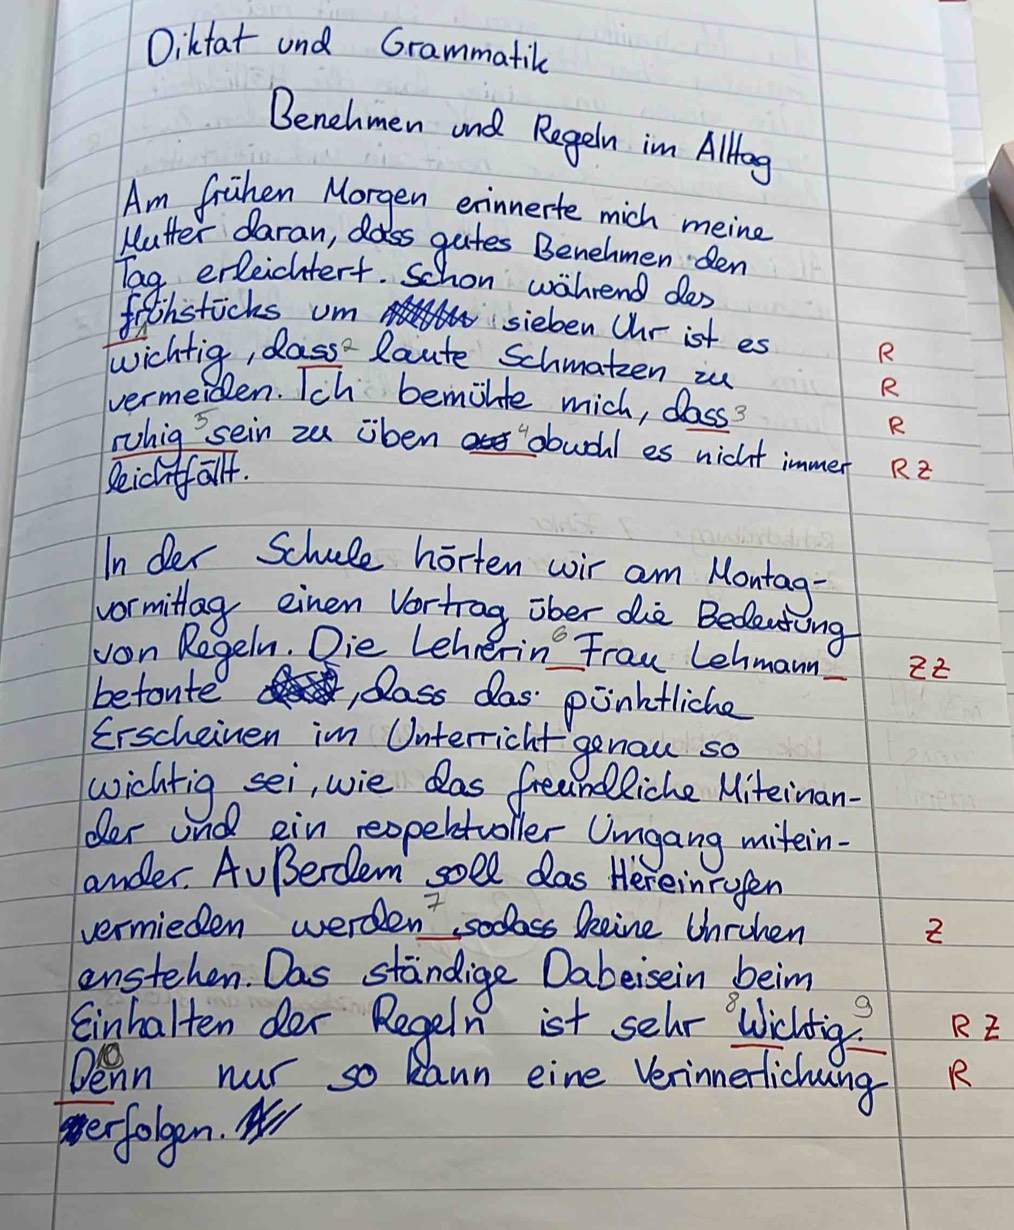 Diktat und Grammatik
Benehmen und Regeln im Alltag
Am frühen Morgen erinnerte mich meine
Mutter daran, dass gutes Benehmen den
Tag erleichtert. Schon während des
frühstücks um sieben Uhr ist es
1
wichtig, dass 2 laute Schmatzen zu R
vermeiden. Ich bemühte mich, dass 3 R
ruhig 5 sein zu üben 4 obwohl es nicht immer R
leichtfällt. R Z
In der Schule hörten wir am Montag-
vormittag einen Vortrag über die Bedeutung
von Regeln. Die Lehrerin 6 Frau Lehmann Z Z
betonte , dass das pünktliche
Erscheinen im Unterricht genau so
wichtig sei, wie das freundliche Miteinan-
der und ein respektvoller Umgang mitein-
ander. Außerdem soll das Hereinrufen
vermieden werden 7, sodass keine Unruhen Z
enstehen. Das ständige Dabeisein beim
Einhalten der Regeln ist sehr 8 Wichtig. 9 R Z
10
Denn nur so kann eine Verinnerlichung R
erfolgen.